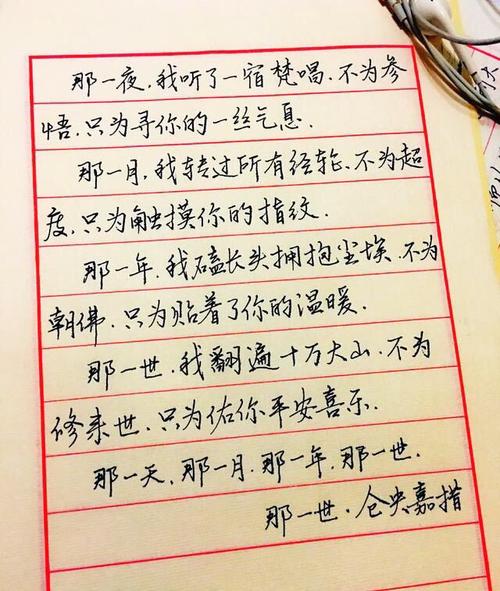 那一夜,我听了一宿梵唱.不为参
悟.只为寻你的一丝气息.
那一月,我转过所有经轮.不为超
度.只为触摸你的指纹.
那一年.我磕长头拥抱尘埃.不为
朝佛.只为贴着了你的温暖.
那一世.我翻遍十万大山.不为
修来世.只为佑你平安喜乐.
那一天.那一月.那一年.那一世.
那一世·仓央嘉措